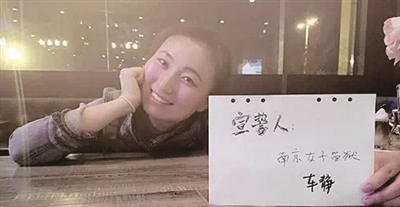 宣誓人：
南京女子监狱
车静